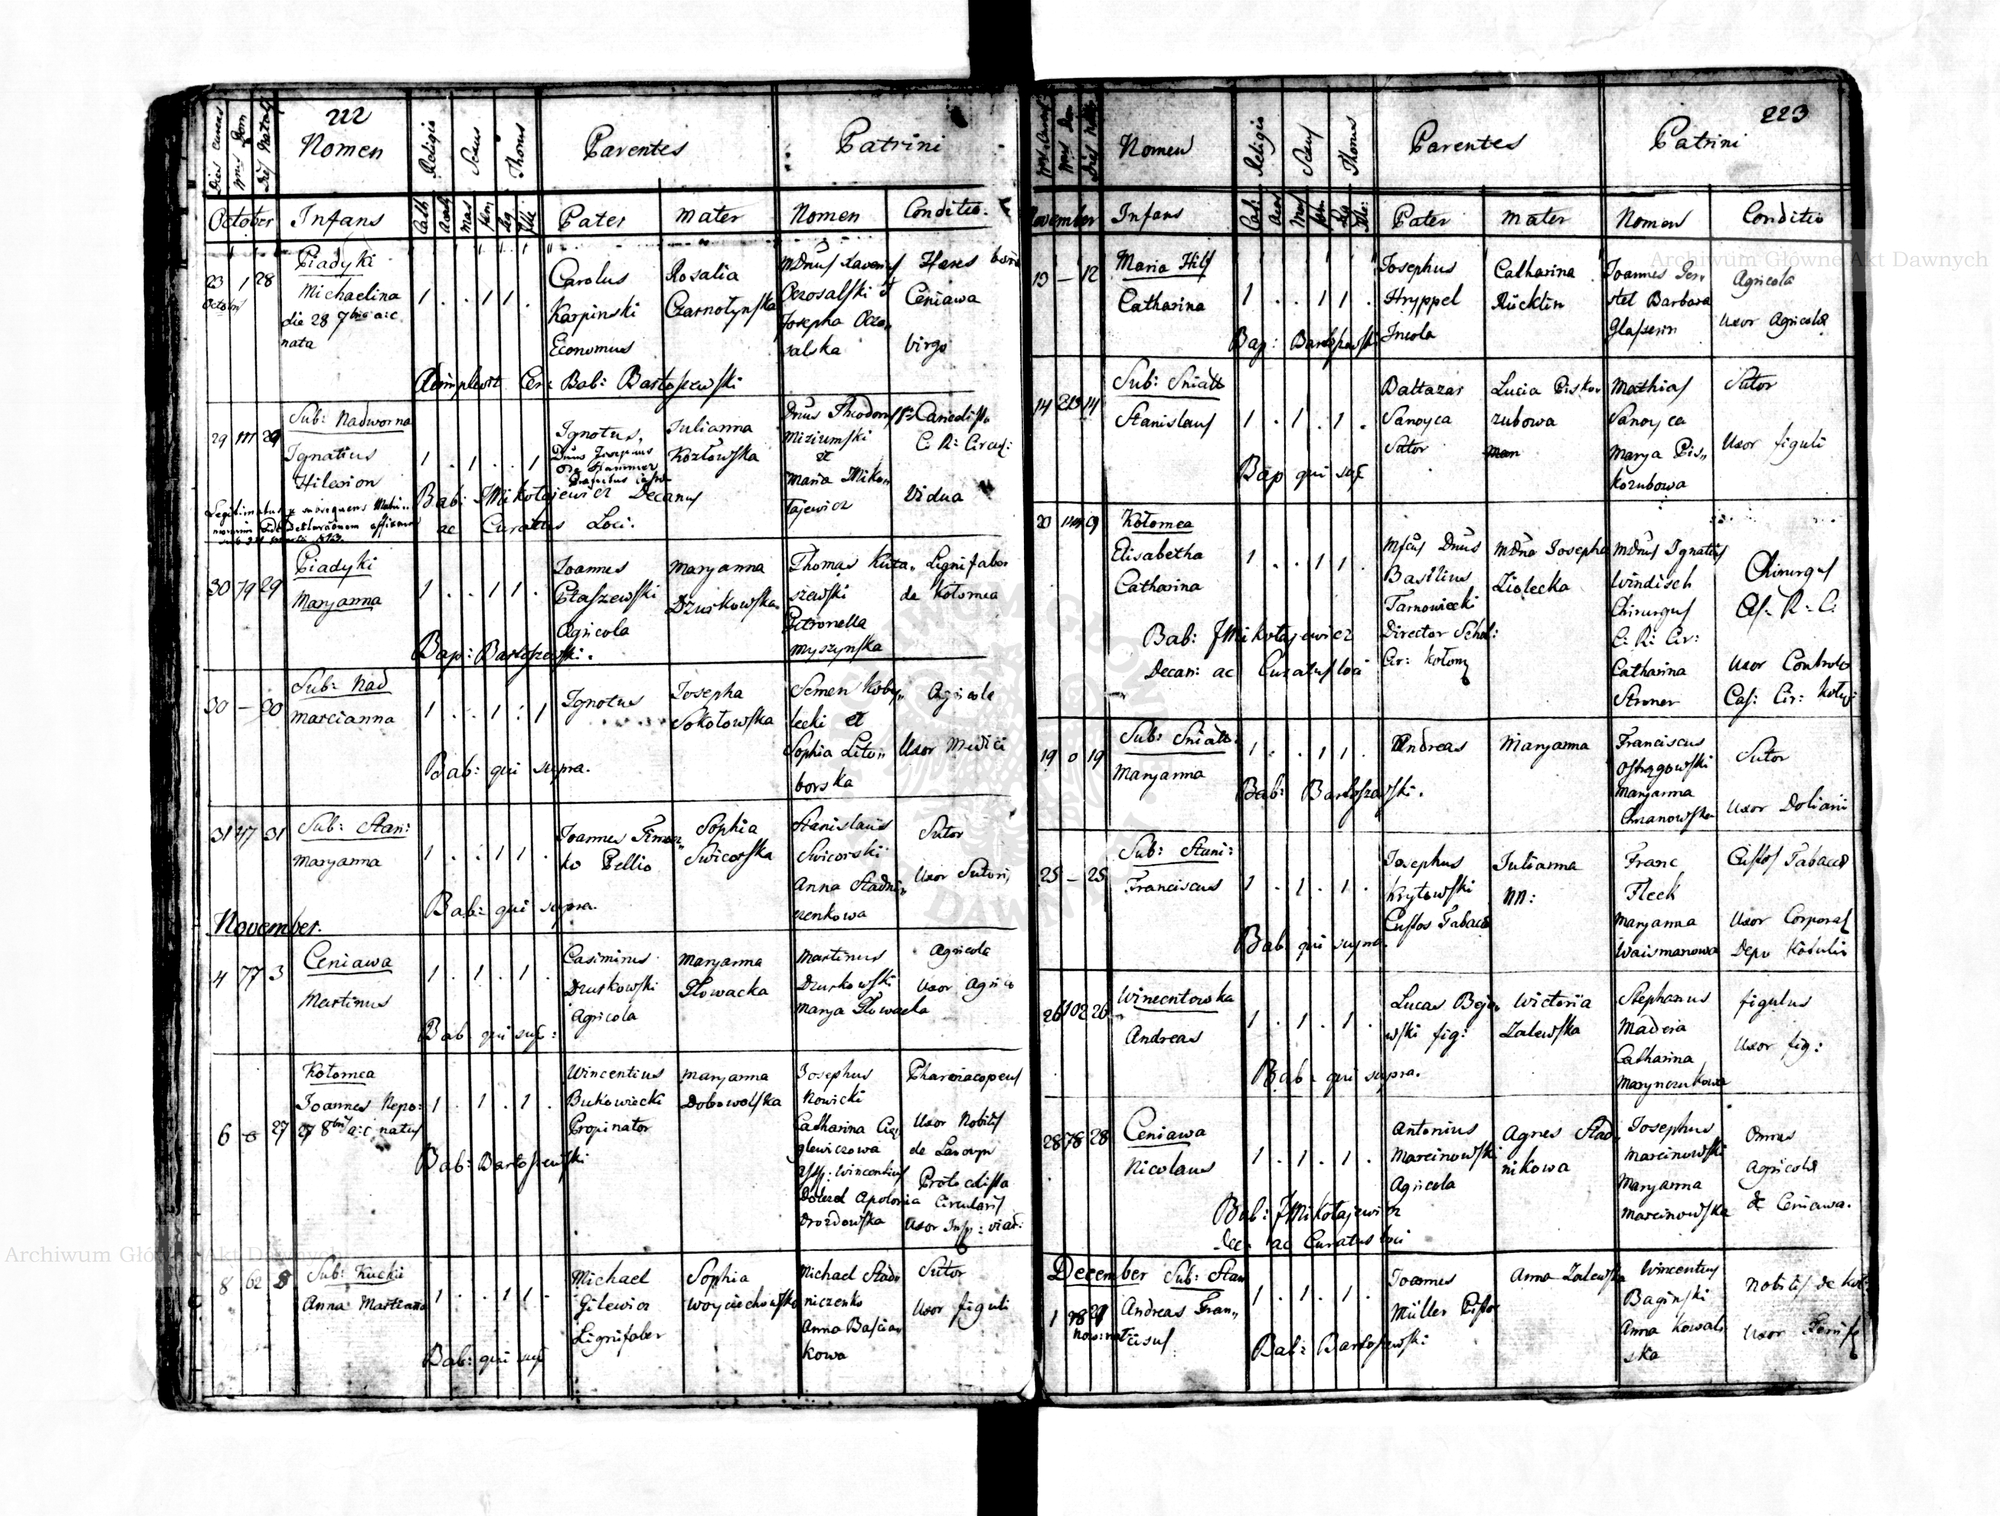 222
Dies currens
Nrus Dom
Dies Natalis
Nomen
Religio
Sexus
Thorus
Parentes
Patrini
October
Infans
Cath
Acath
Mas
fem
leg
Ille
Pater
Mater
Nomen
Conditio.
Piadyki
23 1 28
Octobr
Michaelina
die 28 7bris a: c
nata
1 . . 1 1 .
Carolus
Karpinski
Economus
Rosalia
Czarnołynska
MDnus Xaverius
Ozosalski et
Josepha Ozo-
salska
Heres bon
Ceniawa
Virgo
Adimplevit Cer: Bab: Bartoszewski
Sub: Nadworna
29 111 29
Ignatius
Hilexion
1 . 1 . . 1
Ignotus,
Dnus Josephus
de Hammer
Julianna
Kozłowska
Dnus Theodorus
Miziumski
et
Maria Miko
łajewicz
Cancelista
C: R: Circul:
Vidua
Bab: JMikołajewicz Decanus
ac Curatus Loci.
Piadyki
30 79 29
Maryanna
1 . . 1 1 .
Joannes
Ptaszewski
Agricola
Maryanna
Dzurkowska
Thomas Kuta-
szewski
Petronella
Myszynska
Lignifaber
de Kołomea
Bap: Bartoszewski.
Sub: Nad
30 — 30
Marcianna
1 . . 1 . 1
Ignotus
Josepha
Sokołowska
Semen Koby-
lecki et
Sophia Lito-
borska
Agricole
Uxor Medici
Bab: qui supra.
Sub: Stan:
31 47 31
Maryanna
1 . . 1 1 .
Joannes Timon
ko Pellio
Sophia
Swicorska
Stanislaus
Swicorski
Anna Stadni-
czenkowa
Sutor
Uxor Sutoris
Bab: qui supra.
November.
Ceniawa
4 77 3
Martinus
1 . 1 . 1 .
Casimirus
Dzurkowski
Agricola
Maryanna
Słowacka
Martinus
Dzurkowski
Marya Słowacka
Agricola
Uxor Agrico
Bab qui sup:
Kołomea
Joannes Nepo:
6 0 27
27 8bris a: c natus
1 . 1 . 1 .
Wincentius
Bukowiecki
Propinator
Maryanna
Dobrowolska
Josephus
Nowicki
Catharina Cię
glewiczowa
Assis: Wincentius
Apolonia
Drozdowska
Pharmacopeus
Uxor Nobilis
Protocolista
Circularis
Uxor Insp: viar:
Bab: Bartoszewski
Sub: Kuckie
8 62 8
Anna Martiana
1 . . 1 1 .
Michael
Gilewicz
Lignifaber
Sophia
Woyciechowska
Michael Stad
niczenko
Anna
kowa
Sutor
Uxor figuli
Bab: qui sup
223
Nomen
Religio
Sexus
Thorus
Parentes
Patrini
November
Infans
Pater
Mater
Nomen
Conditio
Maria Hilf
13 — 12
Catharina
1 . . 1 1 .
Josephus
Hryppel
Incola
Catharina
Rücklin
Joannes Ger
stel Barbara
Glaserin
Agricola
Uxor Agricolæ
Bap: Bartoszewski
Sub: Sniatt
14 213 14
Stanislaus
1 . 1 . 1 .
Baltazar
Sanoyca
Sutor
Lucia Piskor
zubowa
Mathias
Sanoyca
Marya Pis-
kozubowa
Sutor
Uxor figuli
Bap qui sup
Kołomea
Elisabetha
Catharina
1 . . 1 1 .
Mfcus Dnus
Basilius
Tarnowiecki
Director Schol:
Cir: Kołom
MDna Josepha
Ziolecka
MDnus Ignatius
Windisch
Chirurgus
C: R: Cir:
Catharina
Stroner
Chirurgus
Cas: R: C:
Uxor Controlo
Cas: Cir: Kołom
Bab: JMikołajewicz
Decan: ac Curatus loci
Sub: Sniatt:
19 0 19
Maryanna
1 . . 1 1 .
Andreas
Maryanna
Franciscus
Ostrzgowski
Maryanna
Chranowska
Sutor
Uxor Doliarii
Bab: Bartoszewski.
Sub: Stani:
25 — 25
Franciscus
1 . 1 . 1 .
Josephus
Krytowski
Custos Tabacæ
Julianna
NN:
Franc
Fleck
Maryanna
Waismanowa
Custos Tabacæ
Uxor Corporal
Bab qui supra
Winecntowka
26 102 26
Andreas
1 . 1 . 1 .
Lucas Beja
wski fig:
Wictoria
Zalewska
Stephanus
Maderia
Catharina
Marynczukowa
figulus
Uxor fig:
Bab: qui supra.
Ceniawa
28 78 28
Nicolaus
1 . 1 . 1 .
Antonius
Marcinowski
Agricola
Agnes Stad
nikowa
Josephus
Marcinowski
Maryanna
Marcinowska
Omnes
Agricolæ
de Ceniawa.
Bab: JMikołajewicz
Dec: ac Curatus loci
December Sub: Stan
Andreas Fran-
ciscus
1 . 1 . 1 .
Joannes
Müller Pistor
Anna Zalewska
Wincentius
Baginski
Anna Kowals
ska
Nobilis de Koł:
Bab: Bartoszewski
Archiwum Główne Akt Dawnych
Archiwum Główne Akt Dawnych